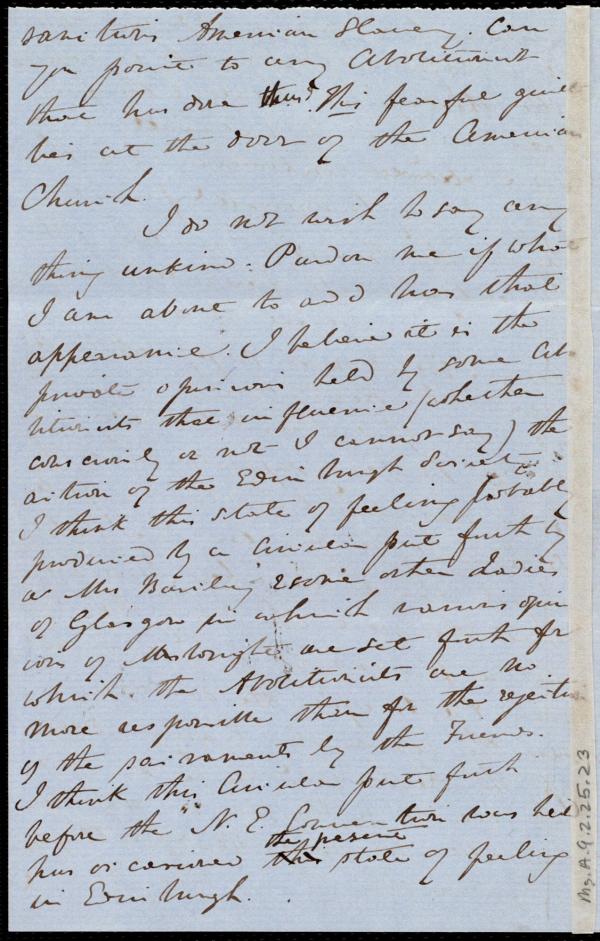 sanctions American Slavery. Can
you point to any Abolitionist
that has done thus? This fearful guilt
lies at the door of the American
Church.
I do not wish to say any
thing unkind. Pardon me if what
I am about to add has that
appearance. I believe it is the
private opinions held by some Ab
litionists that influence (whether
consciously or not I cannot say) the
action of the Edinburgh Society
I think this state of feeling probably
produced by a Circular put forth by
a Mrs & some other Ladies
of Glasgow in which various opin
ions of Mr Wright are set forth for
which the Abolitionists are no
more responsible than for the rejection
of the sacraments by the Friends.
I think this Circular put forth
before the "N. E. Convention was held
the present
has occasioned this state of feeling
in Edinburgh.
Ms. A. 9. 2. 25. 23